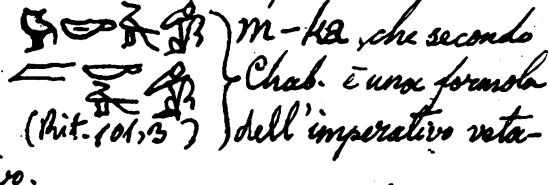 m-ka, che secondo
Chab. è una formola
(Rit. 101,3) dell'imperativo veta-
vo.